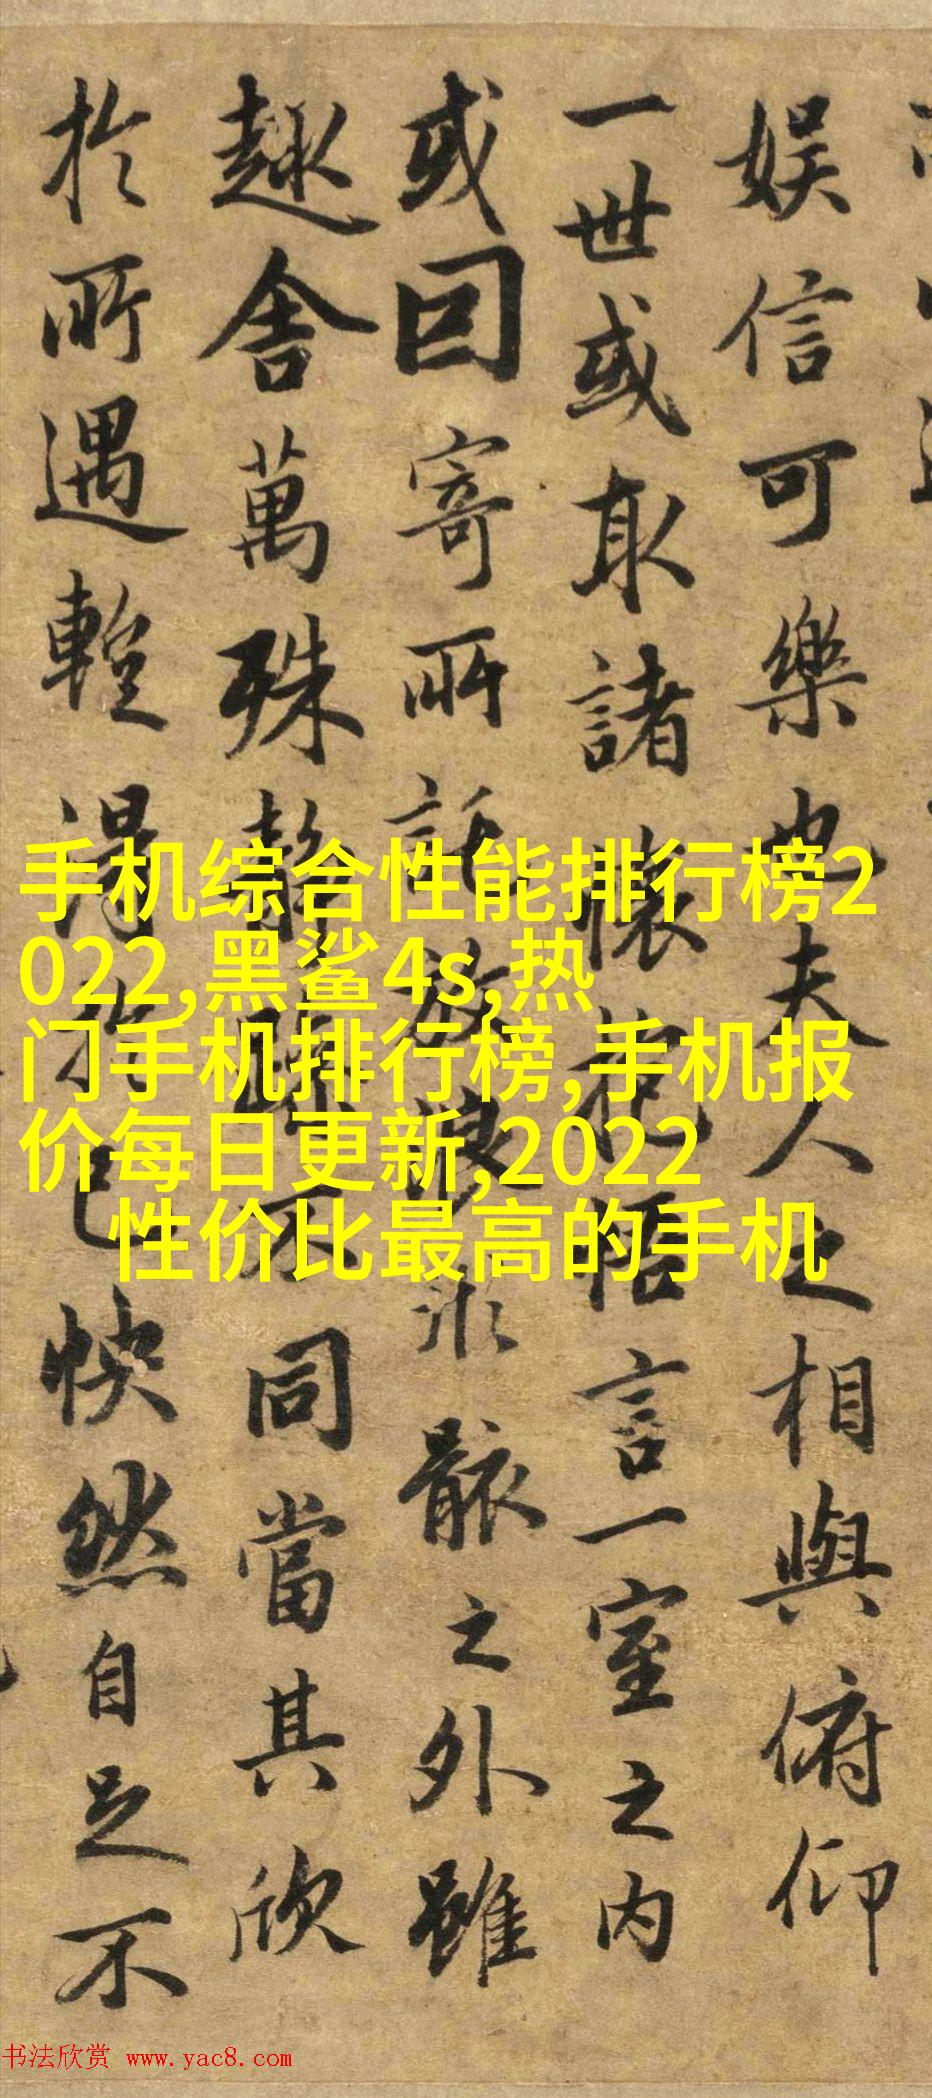 娱信可樂也夫人之相與俯仰
一世或取諸懷抱悟言一室之内
或因寄所託放浪形骸之外雖
趣舍萬殊静躁不同當其欣
於所遇蹔得於己怏然自足不
手机综合性能排行榜2
022,黑鲨4s,热
门手机排行榜,手机报
价每日更新,2022
性价比最高的手机
书法欣赏 www.yac8.com